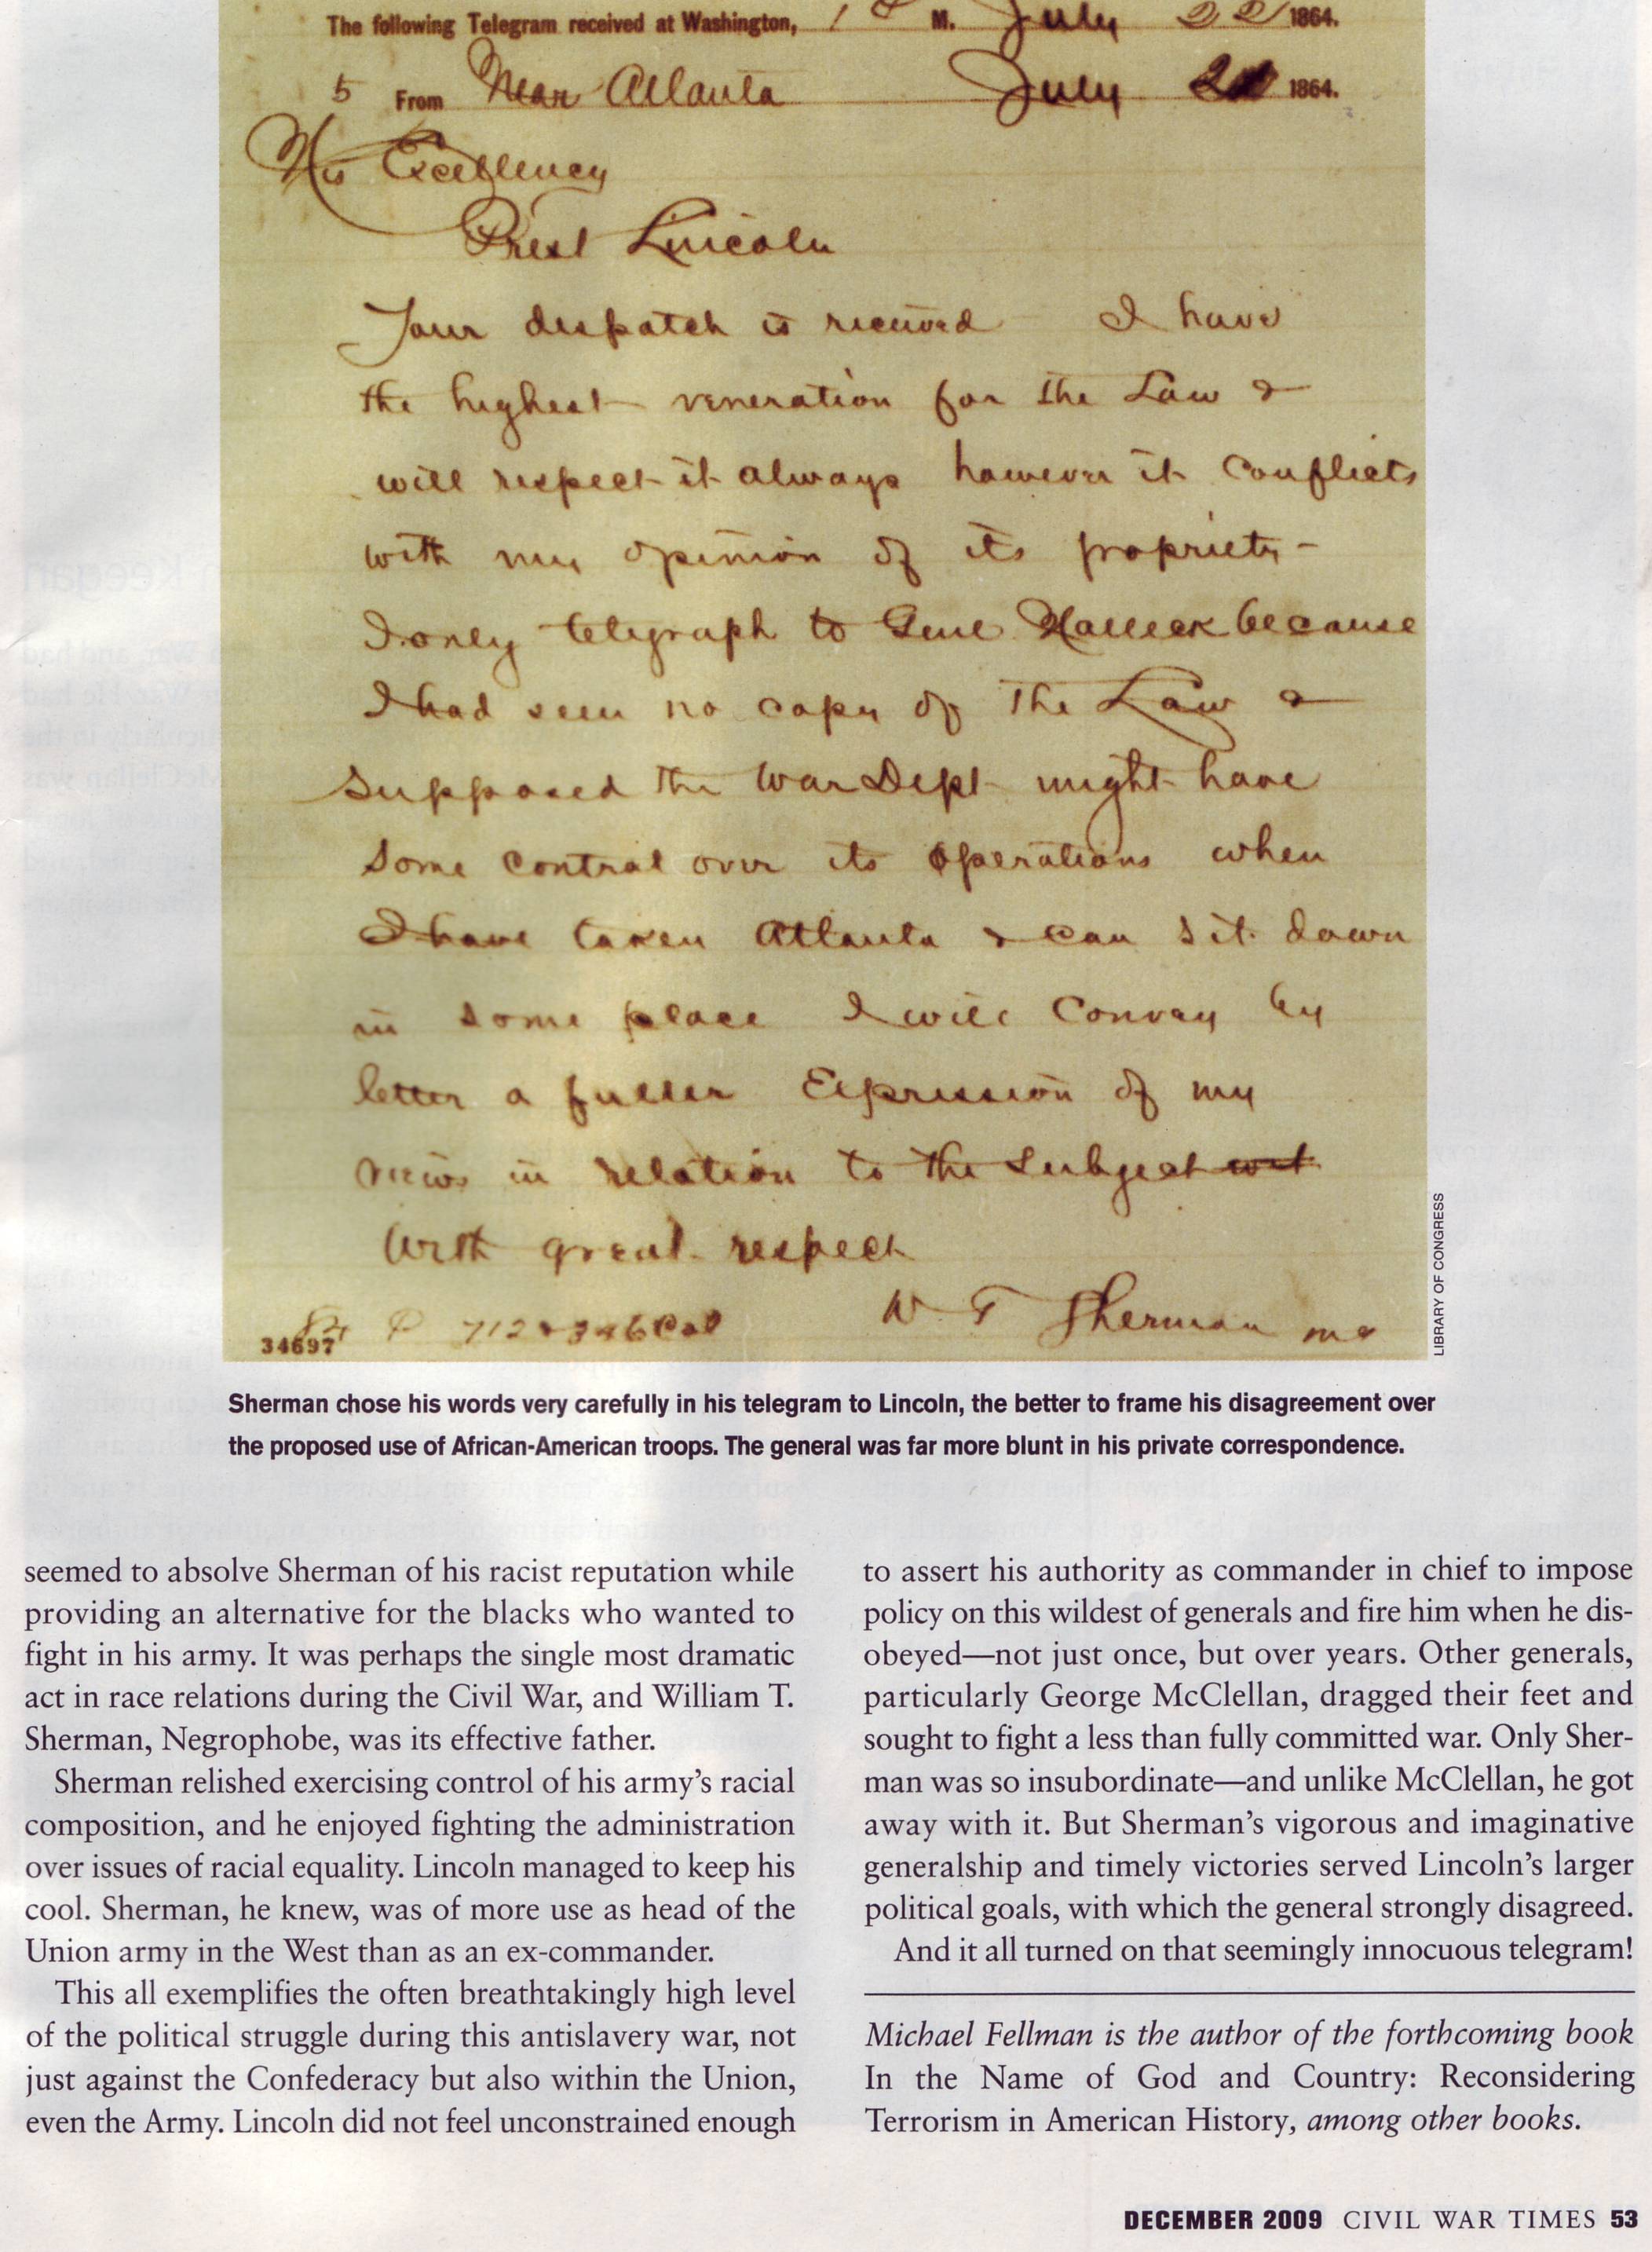 The following Telegram received at Washington, 1 P M. July 22 1864.
5 From Near Atlanta July 21 1864.
His Excellency
Prest Lincoln
Your despatch is received I have
the highest veneration for the Law &
will respect it always however it conflicts
with my opinion of its propriety -
I only telegraph to Genl Halleck because
I had seen no copy of the Law &
supposed the War Dept might have
some control over its operations when
I have taken Atlanta & can sit down
in some place I will convey by
letter a fuller Expression of my
views in relation to the subject
With great respect
W T Sherman
34697
LIBRARY OF CONGRESS
Sherman chose his words very carefully in his telegram to Lincoln, the better to frame his disagreement over
the proposed use of African-American troops. The general was far more blunt in his private correspondence.
seemed to absolve Sherman of his racist reputation while
providing an alternative for the blacks who wanted to
fight in his army. It was perhaps the single most dramatic
act in race relations during the Civil War, and William T.
Sherman, Negrophobe, was its effective father.
Sherman relished exercising control of his army's racial
composition, and he enjoyed fighting the administration
over issues of racial equality. Lincoln managed to keep his
cool. Sherman, he knew, was of more use as head of the
Union army in the West than as an ex-commander.
This all exemplifies the often breathtakingly high level
of the political struggle during this antislavery war, not
just against the Confederacy but also within the Union,
even the Army. Lincoln did not feel unconstrained enough
to assert his authority as commander in chief to impose
policy on this wildest of generals and fire him when he dis-
obeyed—not just once, but over years. Other generals,
particularly George McClellan, dragged their feet and
sought to fight a less than fully committed war. Only Sher-
man was so insubordinate—and unlike McClellan, he got
away with it. But Sherman's vigorous and imaginative
generalship and timely victories served Lincoln's larger
political goals, with which the general strongly disagreed.
And it all turned on that seemingly innocuous telegram!
Michael Fellman is the author of the forthcoming book
In the Name of God and Country: Reconsidering
Terrorism in American History, among other books.
DECEMBER 2009 CIVIL WAR TIMES 53